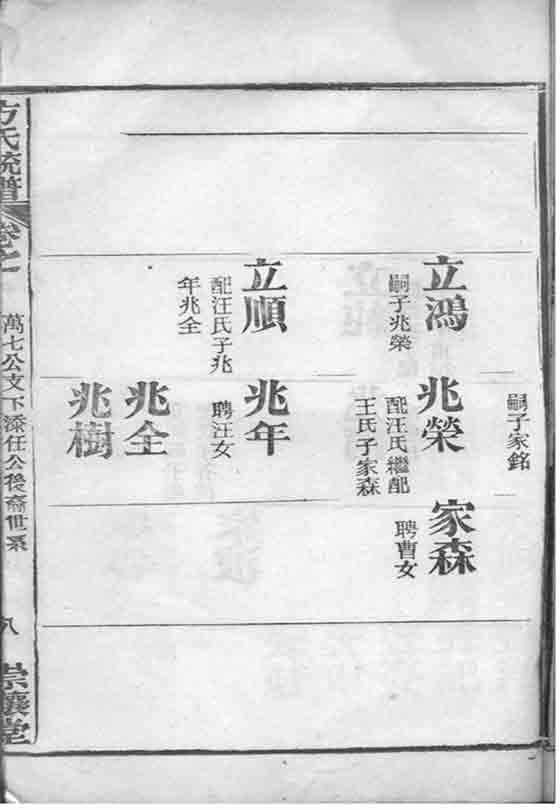 嗣子家銘
立鴻
嗣子兆榮
兆榮
配汪氏繼配
王氏子家森
家森
聘曹女
立順
配汪氏子兆
年兆全
兆年
聘汪女
兆全
兆樹
方氏統譜
卷七
萬七公支下添任公後裔世系
八
崇讓堂